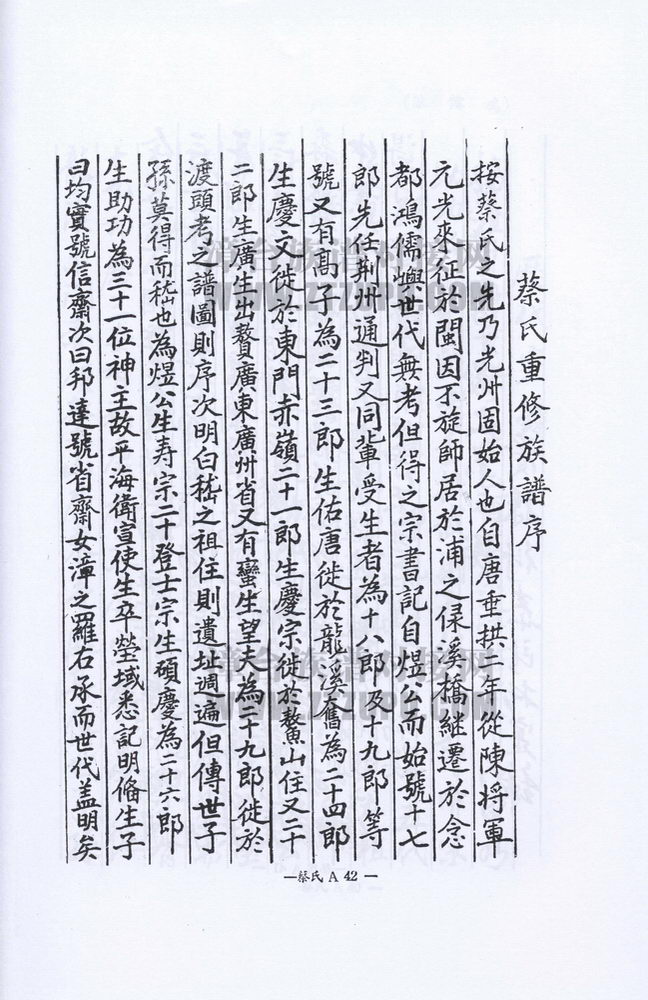 蔡氏重修族譜序
按蔡氏之先乃光州固始人也自唐垂拱二年從陳将軍
元光來征於閩因不旋師居於浦之倮溪橋継遷於念
都鴻儒嶼世代無考但得之宗書記自煜公而始號十七
郎先任荆州通判又同輩受生者為十八郎及十九郎等
號又有髙子為二十三郎生佑唐徙於龍溪奮為二十四郎
生慶文徙於東門赤嶺二十一郎生慶宗徙於鰲山住又二十
二郎生廣生出贅廣東廣州省又有蠻生望夫為二十九郎徙於
渡頭考之譜圖則序次明白嵇之祖住則遺址週遍但傳世子
孫莫得而嵇也為煜公生寿宗二十登士宗生碩慶為二十六郎
生助功為三十一位神主故平海衛宣使生卒塋域悉記明俻生子
曰均實號信齋次曰邦達號省齋女漳之羅右承而世代盖明矣
—蔡氏 A 42 —
漳台族谱对接网
WWW.ZTZUPU.COM
漳台族谱对接网
WWW.ZTZUPU.COM